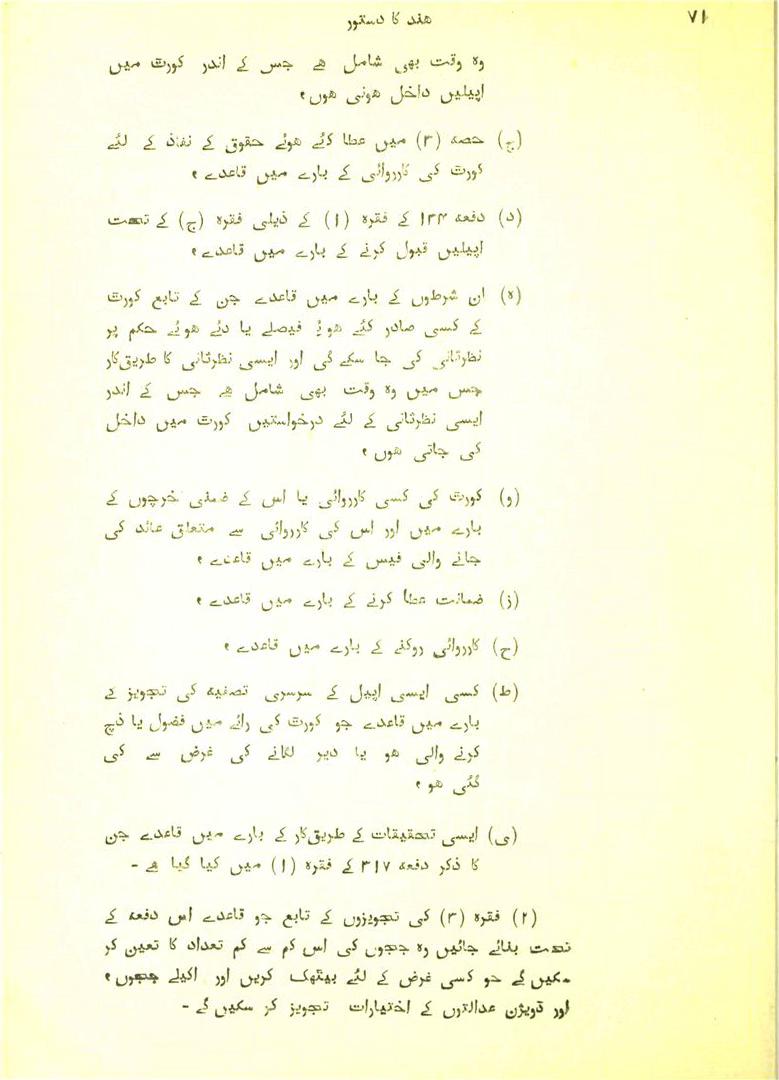 ۷۱
ھند کا دستور
وہ وقت بھی شامل ھے جس کے اندر کورٹ میں
اپیلیں داخل ھونی ھوں ؛
(ج) حصہ (۳) میں عطا کئے ھوئے حقوق کے نفاذ کے لئے
کورٹ کی کارروائی کے بارے میں قاعدے ؛
(د) دفعہ ۱۳۴ کے فقرہ (۱) کے ذیلی فقرہ (ج) کے تحت
اپیلیں قبول کرنے کے بارے میں قاعدے ؛
(ہ) ان شرطوں کے بارے میں قاعدے جن کے تابع کورٹ
کے کسی صادر کئے ھوئے فیصلے یا دئے ھوئے حکم پر
نظرثانی کی جا سکے گی اور ایسی نظرثانی کا طریق‌کار
جس میں وہ وقت بھی شامل ھے جس کے اندر
ایسی نظرثانی کے لئے درخواستیں کورٹ میں داخل
کی جاتی ھوں ؛
(و) کورٹ کی کسی کارروائی یا اس کے ضمنی خرچوں کے
بارے میں اور اس کی کارروائی سے متعلق عائد کی
جانے والی فیس کے بارے میں قاعدے ؛
(ز) ضمانت عطا کرنے کے بارے میں قاعدے ؛
(ح) کارروائی روکنے کے بارے میں قاعدے ؛
(ط) کسی ایسی اپیل کے سرسری تصفیہ کی تجویز کے
بارے میں قاعدے جو کورٹ کی رائے میں فضول یا ذچ
کرنے والی ھو یا دیر لگانے کی غرض سے کی
گئی ھو ؛
(ی) ایسی تحقیقات کے طریق‌کار کے بارے میں قاعدے جن
کا ذکر دفعہ ۳۱۷ کے فقرہ (۱) میں کیا گیا ھے ۔
(۲) فقرہ (۳) کی تجویزوں کے تابع جو قاعدے اس دفعہ کے
تحت بنائے جائیں وہ ججوں کی اس کم سے کم تعداد کا تعین کر
سکیں گے جو کسی غرض کے لئے بیٹھک کریں اور اکیلے ججوں ؛
اور ڈویژن عدالتوں کے اختیارات تجویز کر سکیں گے ۔